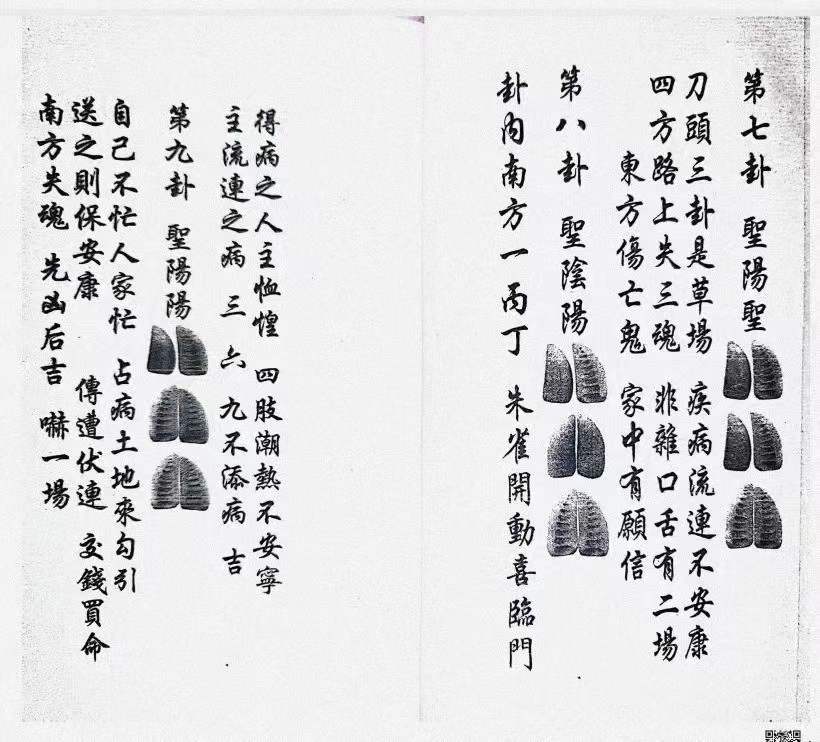 第七卦 聖陽聖
刀頭三卦是草場 疾病流連不安康
四方路上失三魂 非雜口舌有二場
東方傷亡鬼 家中有願信
第八卦 聖陰陽
卦內南方一丙丁 朱雀開動喜臨門
得病之人主恤惶 四肢潮熱不安寧
主流連之病 三六九不添病吉
第九卦 聖陽陽
自己不忙人家忙 占病土地來勾引
送之則保安康 傳遭伏連 交錢買命
南方失魂 先凶后吉 嚇一場